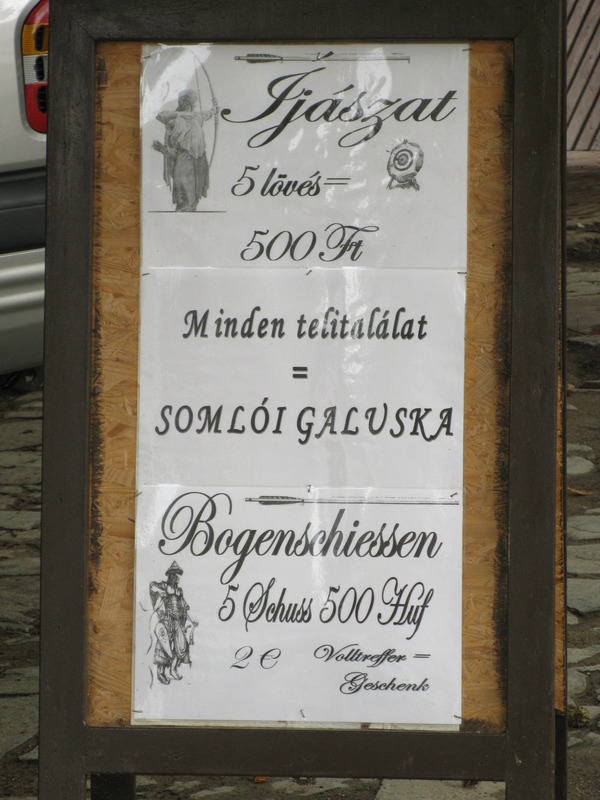 Íjászat
5 lövés=
500 Ft
Minden telitalálat
=
SOMLÓI GALUSKA
Bogenschiessen
5 Schuss 500 Huf
2 € Volltreffer =
Geschenk